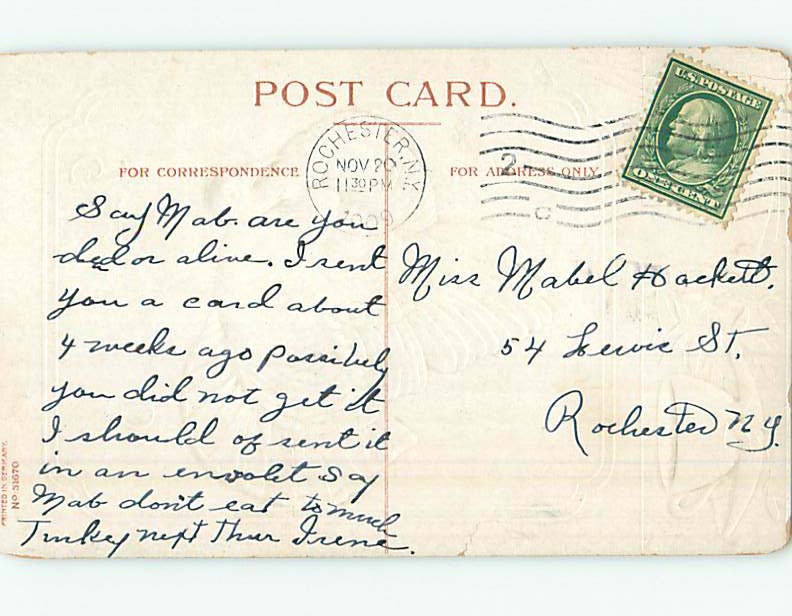 POST CARD.
U.S. POSTAGE
ONE CENT
ROCHESTER, N.Y.
NOV 20
11 30 PM
1909
2
C
FOR CORRESPONDENCE
FOR ADDRESS ONLY
Say Mab. are you
ded or alive. I sent
you a card about
4 weeks ago possibely
you did not get it
I should of sent it
in an envolet Say
Mab don't eat to much
Turkey next Thur Irene.
Miss Mabel Hackett.
54 Lewis St.
Rochester N.Y.
PRINTED IN GERMANY.
No 51670